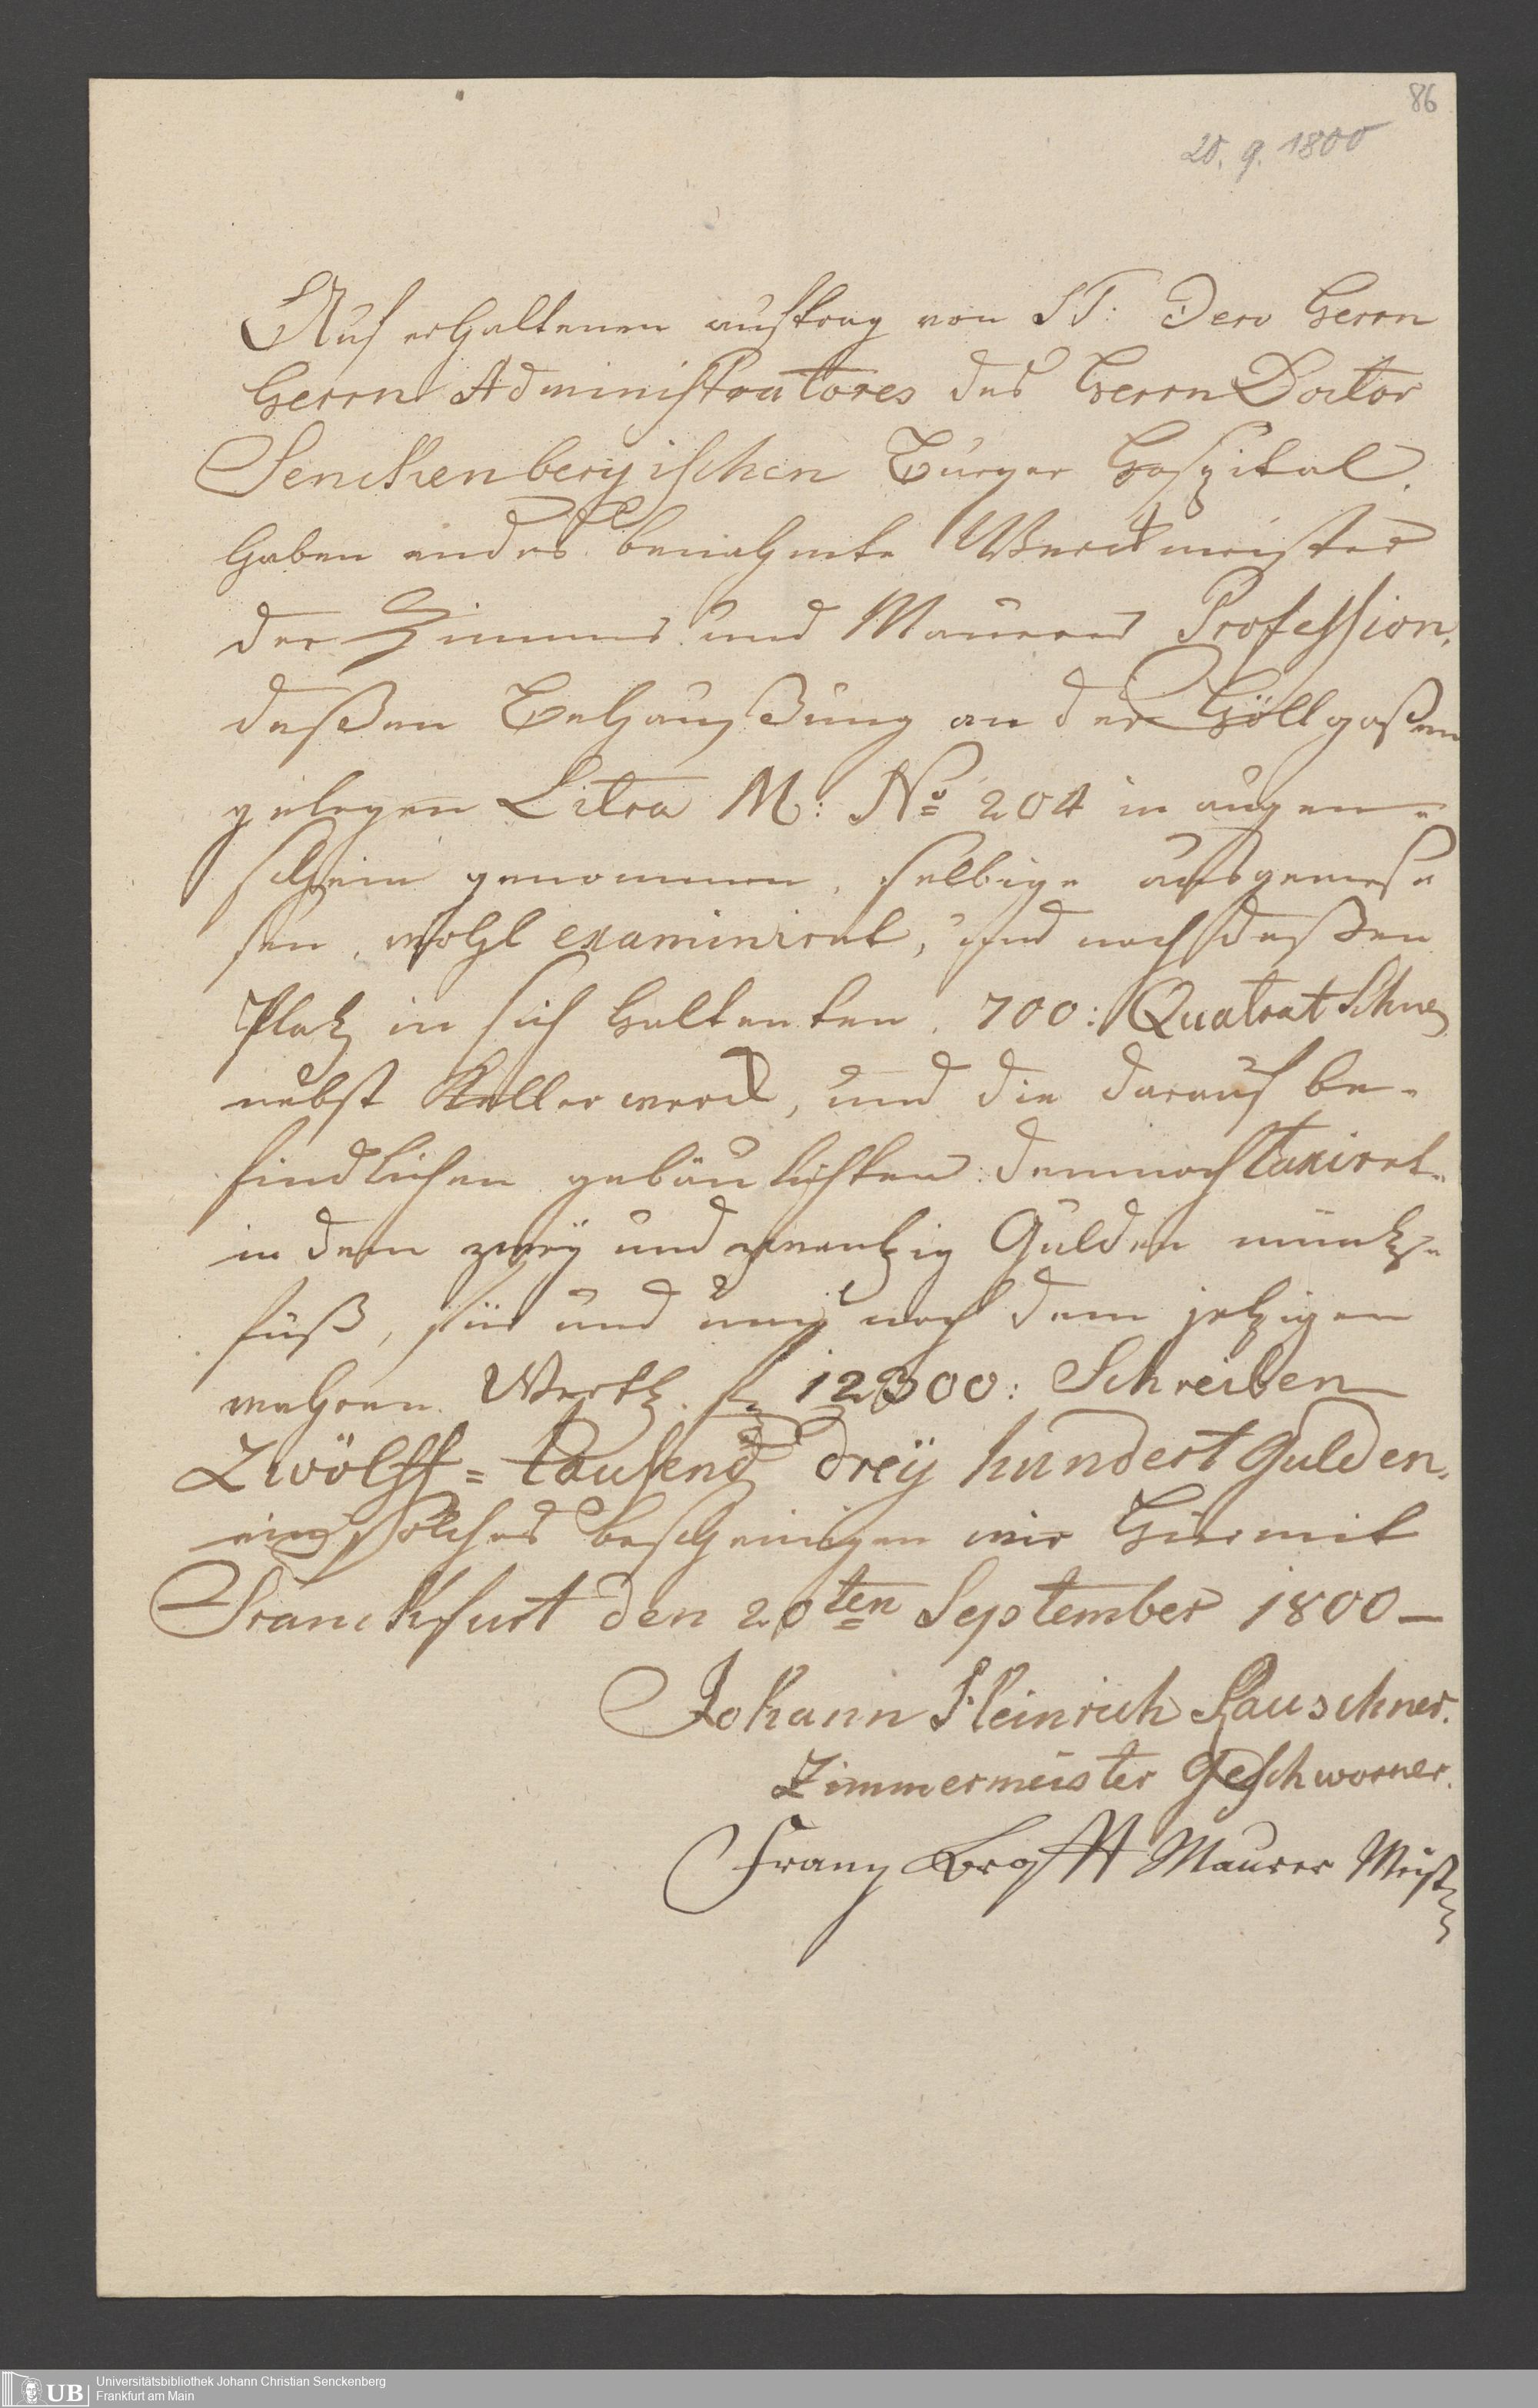 86
20. 9. 1800
Auf erhaltenen auftrag von S.T: Dero Herrn
Herrn Administratores des Herrn Doctor
Senckenbergischen Burger Hospital.
haben endes benahmte Werckmeister
der Zimmer und Maurer Profession,
deßen Behaußung an der Höllgaßen
gelegen Litra M: No 204 in augen-
schein genommen, selbige ausgemeße
sen, wohl examiniret, und nach deßen
Platz in sich haltenten 700: Quatrat Schue
nebst Kellerwerck, und die darauf be-
findlichen gebäulichten dennoch taxiret
in dem zweÿ und zwantzig Gulden müntz-
fuß, für und um nach dem jetzigen
wahren Werth f 12300: Schreiben
Zwölff=tausend dreÿ hundert Gulden,
ein solches bescheinigen wir Hiermit
Franckfurt den 20ten September 1800 –
Johann Heinrich Rauschner.
Zimmermeister Geschworner.
Franz Maurer Meist
UB
Universitätsbibliothek Johann Christian Senckenberg
Frankfurt am Main